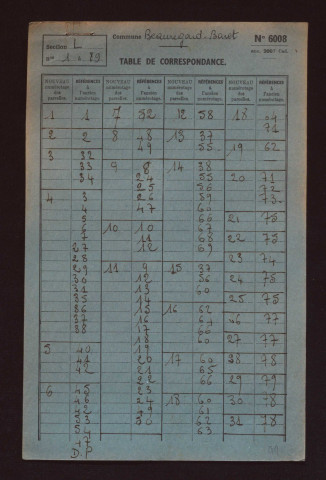 Commune Beauregard-Baret
N° 6008
Section L
N° 1 à 89
TABLE DE CORRESPONDANCE.
NOUVEAU numérotage des parcelles. RÉFÉRENCES à l'ancien numérotage NOUVEAU numérotage des parcelles. RÉFÉRENCES à l'ancien numérotage NOUVEAU numérotage des parcelles. RÉFÉRENCES à l'ancien numérotage NOUVEAU numérotage des parcelles. RÉFÉRENCES à l'ancien numérotage
1 1 7 52 12 58 18
71
2 2 8 48 13 37
3 32 49 55 19 62
33 9 8 14 38
34 24 55 20 71
25 56 72
4 3 26 59 73
4 47 60
5 66 21 75
6 10 10 67
7 11 68 22 75
27 12 69
28 23 74
29 11 9 15 37
30 12 56 24 75
31 13 60
35 14 25 75
36 15 16 62
37 16 67 26 77
38 17 66
18 60 27 77
5 40 19
41 20 17 60 28 78
42 21 65
22 66 29 79
6 45 23
46 24 18 60 30 78
49 61
53 50 62 31 78
54 63
D.P